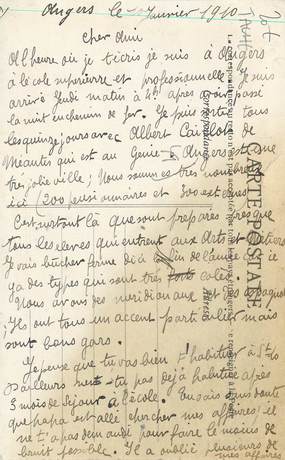 Angers le Janvier 1910
Cher Ami
A l'heure où je t'écris je suis à Angers
à l'école supérieure et professionnelle. Je suis
arrivé Jeudi matin à 4h après avoir passé
la nuit en chemin de fer. Je puis sortir tous
les quinze jours avec Albert Cailloton de
Méautis qui est au Génie. Angers est une
très jolie ville; Nous sommes très nombreux
ici (200 pensionnaires et 300 externes)
C'est surtout là que sont préparés presque
tous les élèves qui entrent aux Arts et
Je vais bûcher ferme d'ici la fin de l'année ici
ya des types qui sont très calés.
Nous avons des méridionaux et des espagnols
Ils ont tous un accent particulier mais
sont bons gars.
Je pense que tu vas bien t'habituer à St-Lo
d'ailleurs n'es-tu pas déjà habitué après
3 mois de séjour à l'école. Tu sais sans doute
que papa est allé chercher mes affaires; il
ne t'a pas demandé pour faire le moins de
bruit possible. Il a oublié plusieurs de
mes affaires
CARTE POSTALE
Correspondance
Adresse